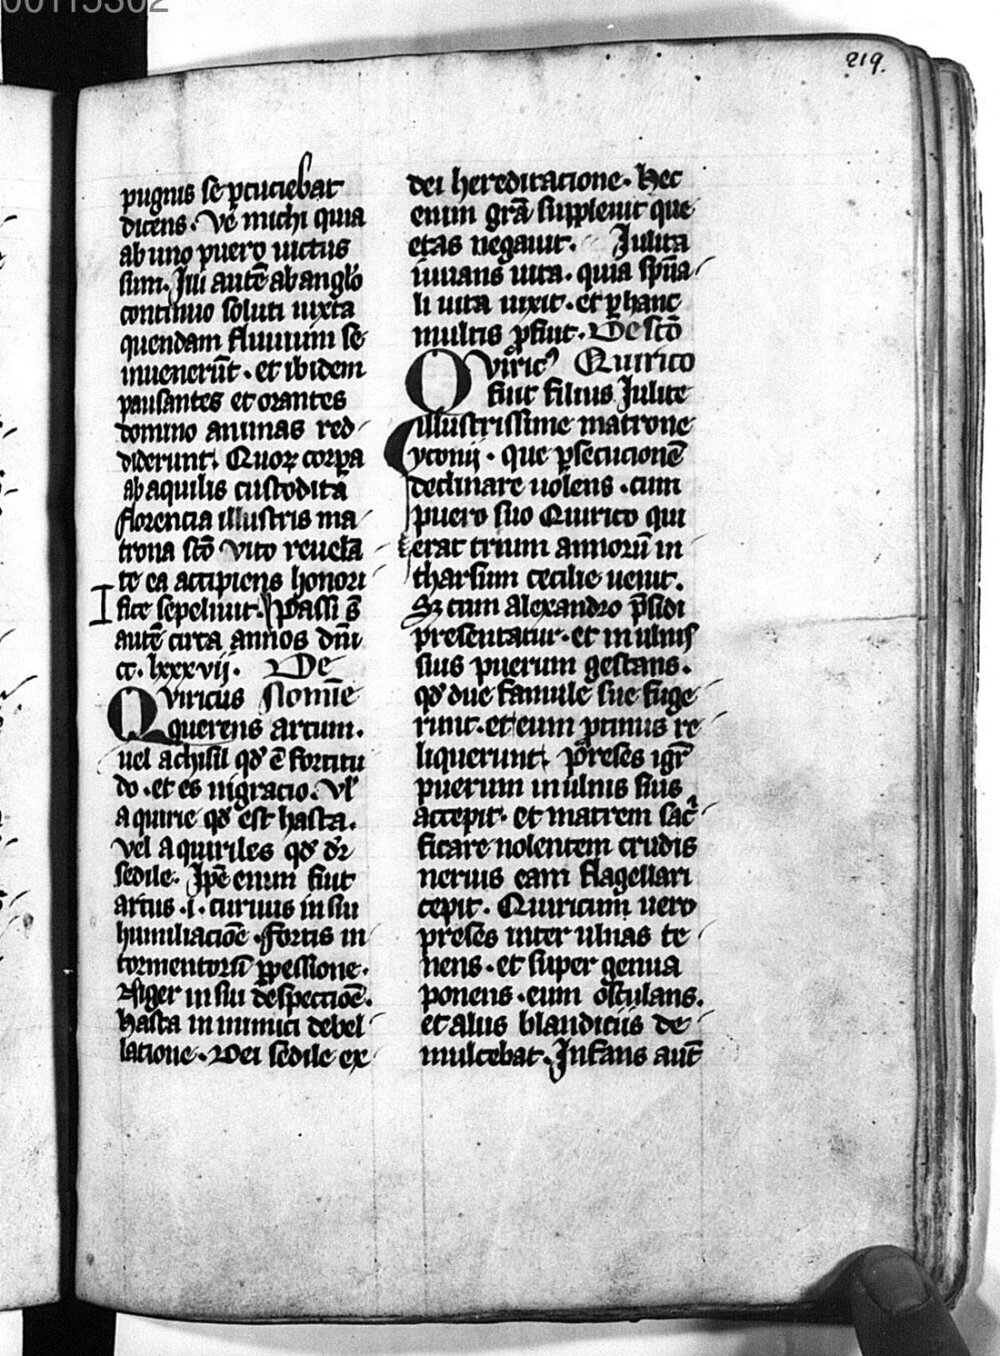 00115302
219.
pugnis se ꝑcuciebat
dicens. Ve michi quia
ab uno puero uictus
sum. Illi autē ab anglo
continuo soluti iuxta
quendam fluuium se
inuenerūt. et ibidem
pausantes et orantes
domino animas red
diderunt. Quoꝝ corpa
ab aquilis custodita
florencia illustris ma
trona scō vito reuelā
te ea accipiens honori
fice sepeliuit. Passi s̄
autē circa annos dn̄i
cc. lxxxvij. De
Quiricus Nomīe
querens arcum.
uel achisil qd̓ ē fortitu
do. et es nigracio. Vl̓
a quirie qd̓ est hasta.
Vel a quiriles qd̓ dr̄
sedile. Ip̄e enim fuit
artus .i. curuus in sui
humiliacioē. fortis in
tormentorū ꝑpessione.
Niger in sui despectioē.
hasta in inimici debel
latione. Dei sedile ex
dei hereditacione. Hec
enim grā suppleuit que
etas negauit. Julita
iuuans uita. quia spūa
li uita uixit. et ꝑ hanc
multis ꝓfuit. De scō
Quiric᾿ Quirico
fuit filius Julite
illustrissime matrone
yconij. que ꝑsecucionē
declinare uolens. cum
puero suo Quirico qui
erat trium annorū in
tharsum cecilie uenit.
Sꝫ cum Alexandro p̄sidi
presentatur. et in ulnis
suis puerum gestans.
qd̓ due famule sue fuge
runt. et eum ptinus re
liquerunt. Preses igr̄
puerum in ulnis suis
accepit. et matrem sac̄
ficare nolentem crudis
neruis eam flagellari
cepit. Quiricum uero
preses inter ulnas te
nens. et super genua
ponens. eum osculans.
et aliis blandiciis de
mulcebat. Infans aut̄